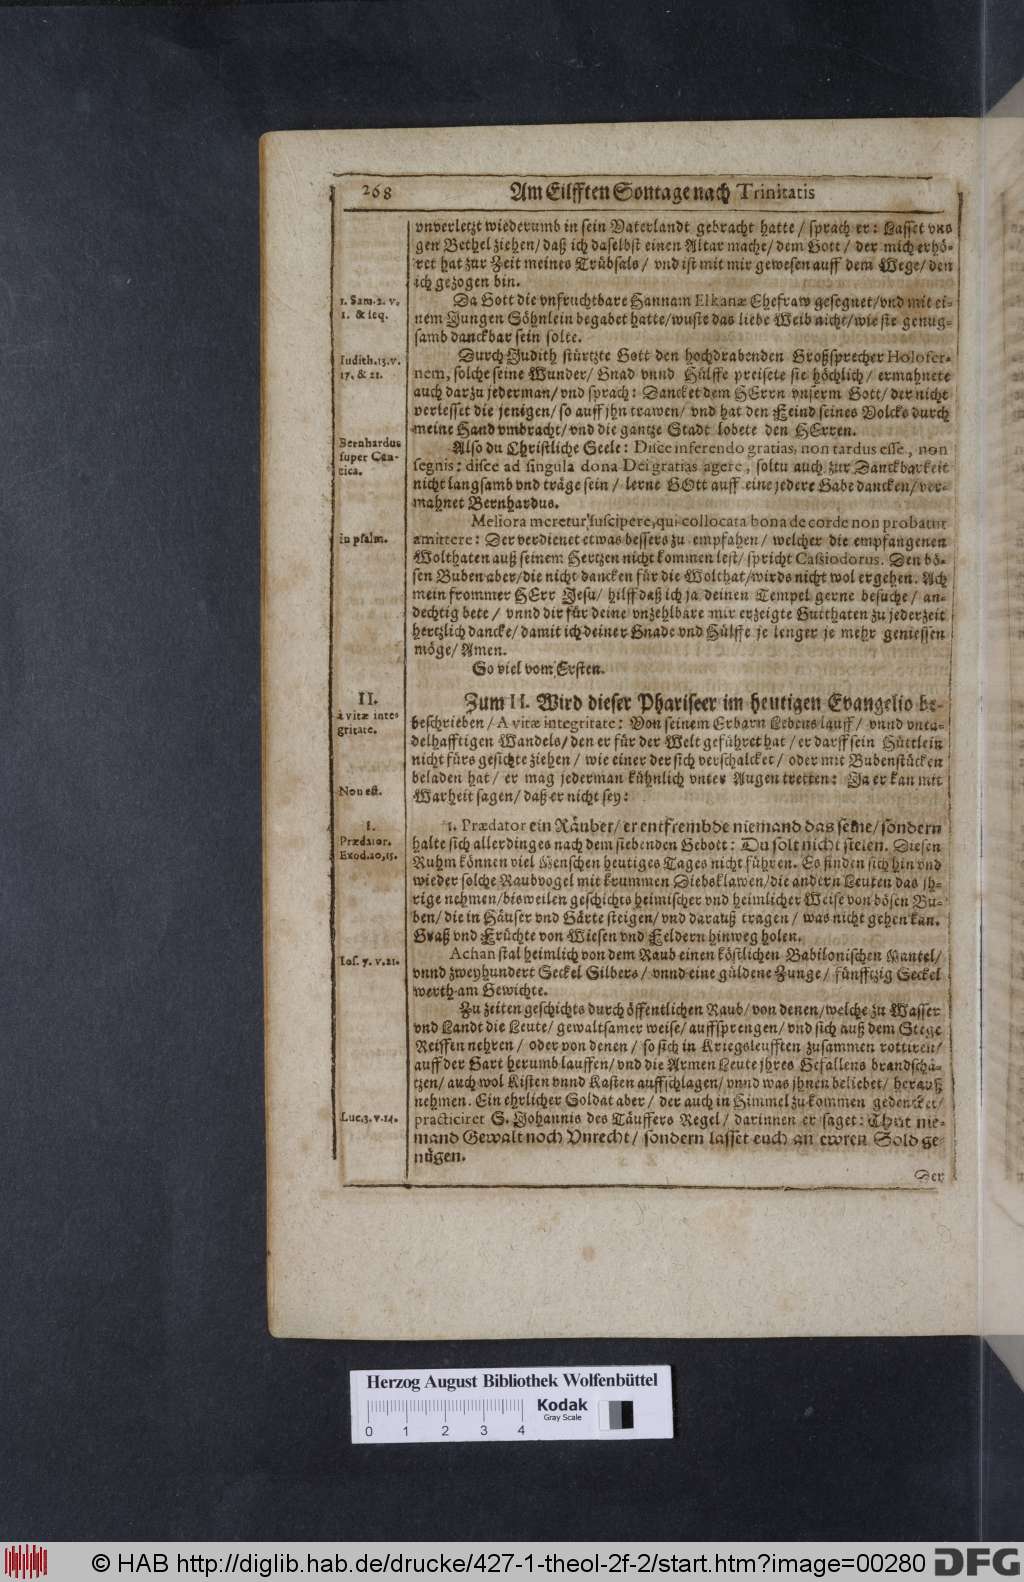 268
Am Eilfften Sontage nach Trinitatis
vnverletzt wiederumb in sein Vaterlandt gebracht hatte / sprach er: Lasset vns
gen Bethel ziehen / daß ich daselbst einen Altar mache / dem Gott / der mich erhö-
ret hat zur Zeit meines Trübsals / vnd ist mit mir gewesen auff dem Wege / den
ich gezogen bin.
1. Sam. 2. v.
1. & seq.
Da Gott die vnfruchtbare Hannam Elkanæ Ehefraw gesegnet / vnd mit ei-
nem Jungen Söhnlein begabet hatte / wuste das liebe Weib nicht / wie sie genug-
samb danckbar sein solte.
Iudith. 13. v.
17. & 21.
Durch Judith stürtzte Gott den hochdrabenden Großsprecher Holofer-
nem, solche seine Wunder / Gnad vnnd Hülffe preisete sie höchlich / ermahnete
auch darzu jederman / vnd sprach: Dancket dem HErrn vnserm Gott / der nicht
verlesset die jenigen / so auff jhn trawen / vnd hat den Feind seines Volcks durch
meine Hand vmbracht / vnd die gantze Stadt lobete den HErren.
Bernhardus
super Can-
tica.
Also du Christliche Seele: Disce inferendo gratias, non tardus esse, non
segnis: disce ad singula dona Dei gratias agere, soltu auch zur Danckbarkeit
nicht langsamb vnd träge sein / lerne GOtt auff eine jedere Gabe dancken / ver-
mahnet Bernhardus.
in psalm.
Meliora meretur suscipere, qui collocata bona de corde non probatur
amittere: Der verdienet etwas bessers zu empfahen / welcher die empfangenen
Wolthaten auß seinem Hertzen nicht kommen lest / spricht Cassiodorus. Den bö-
sen Buben aber / die nicht dancken für die Wolthat / wirds nicht wol ergehen. Ach
mein frommer HErr Jesu / hilff daß ich ja deinen Tempel gerne besuche / an-
dechtig bete / vnnd dir für deine vnzehlbare mir erzeigte Gutthaten zu jederzeit
hertzlich dancke / damit ich deiner Gnade vnd Hülffe je lenger je mehr geniessen
möge / Amen.
So viel vom Ersten.
II.
à vitæ inte-
gritate.
Zum II. Wird dieser Phariseer im heutigen Evangelio be-
beschrieben / A vitæ integritate: Von seinem Erbarn Lebens lauff / vnnd vnta-
delhafftigen Wandels / den er für der Welt geführet hat / er darff sein Hüttlein
nicht fürs gesichte ziehen / wie einer der sich verschalcket / oder mit Bubenstücken
beladen hat / er mag jederman kühnlich vnter Augen tretten: Ja er kan mit
Warheit sagen / daß er nicht sey:
Non est.
1.
Prædator.
Exod. 20, 15.
1. Prædator ein Räuber / er entfrembde niemand das seine / sondern
halte sich allerdinges nach dem siebenden Gebott: Du solt nicht stelen. Diesen
Ruhm können viel Menschen heutiges Tages nicht führen. Es finden sich hin vnd
wieder solche Raubvogel mit krummen Diebsklawen / die andern Leuten das jh-
rige nehmen / bisweilen geschichts heimischer vnd heimlicher Weise von bösen Bu-
ben / die in Häuser vnd Gärte steigen / vnd darauß tragen / was nicht gehen kan.
Graß vnd Früchte von Wiesen vnd Feldern hinweg holen.
Ios. 7. v. 21.
Achan stal heimlich von dem Raub einen köstlichen Babilonischen Mantel /
vnnd zweyhundert Seckel Silbers / vnnd eine güldene Zunge / fünfftzig Seckel
werth am Gewichte.
Zu zeiten geschichts durch öffentlichen Raub / von denen / welche zu Wasser
vnd Landt die Leute / gewaltsamer weise / auffsprengen / vnd sich auß dem Stege
Reiffin nehren / oder von denen / so sich in Kriegsleufften zusammen rottiren /
auff der Gart herumb lauffen / vnd die Armen Leute jhres Gefallens brandscha-
tzen / auch wol Kisten vnnd Kasten auffschlagen / vnnd was jhnen beliebet / herauß
nehmen. Ein ehrlicher Soldat aber / der auch in Himmel zu kommen gedencket /
Luc. 3. v. 14.
practiciret S. Johannis des Täuffers Regel / darinnen er saget: Thut nie-
mand Gewalt noch Vnrecht / sondern lasset euch an ewren Sold ge-
nügen.
Der
Herzog August Bibliothek Wolfenbüttel
Kodak
Gray Scale
0 1 2 3 4
© HAB http://diglib.hab.de/drucke/427-1-theol-2f-2/start.htm?image=00280
DFG